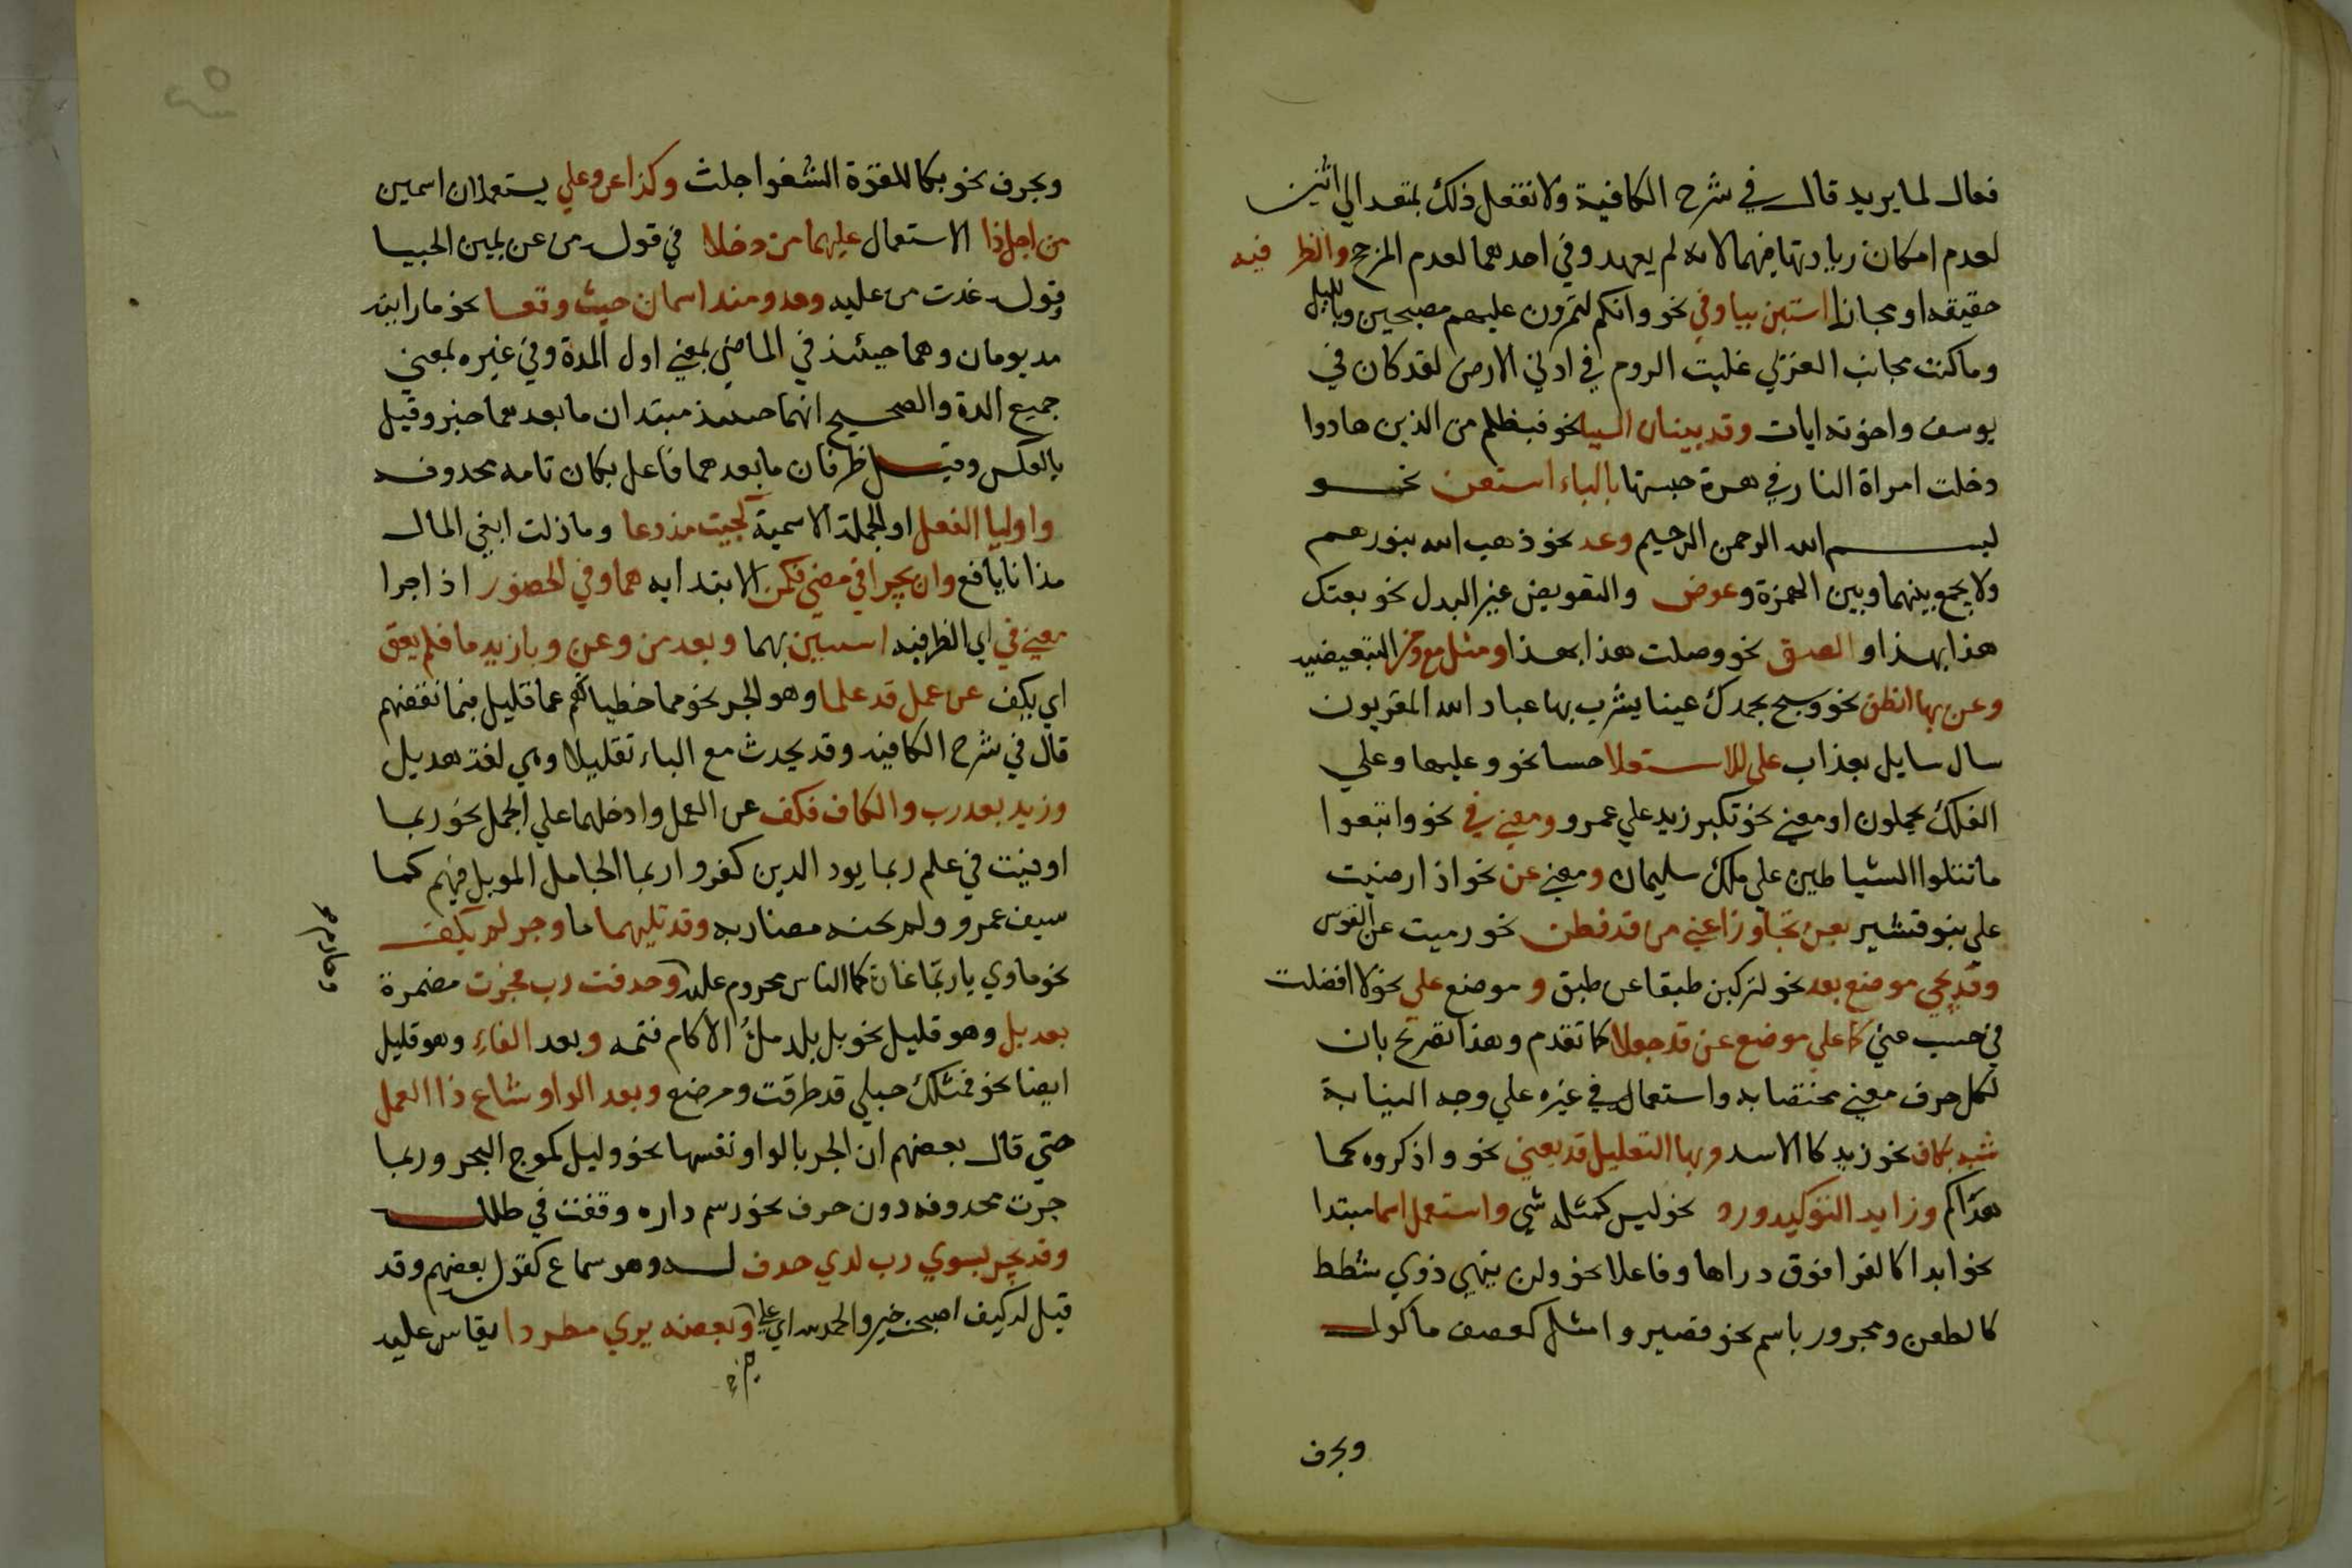 فعال لما يريد قال في شرح الكافية ولا تفعل ذلك بمتعد الي اثنين
لعدم امكان زيادتها فيهما لانه لم يعهد وفي احدهما لعدم المرجح والظرفيه
حقيقه او مجازا استبن ببا وفي نحو وانكم لتمرون عليهم مصبحين وبالليل
وما كنت بجانب الغربي غلبت الروم في ادني الارض لقد كان في
يوسف واخوته ايات وقد يبينان السببا نحو فبظلم من الذين هادوا
دخلت امراة النار في هرة حبستها بالباء استعن نحو
بسم الله الرحمن الرحيم وعد نحو ذهب الله بنورهم
ولا يجمع بينهما وبين الهمزة وعوض والتعويض غير البدل نحو بعتك
هذا بهذا والصق نحو وصلت هذا بهذا ومثل مع ومن التبعيضيه
وعن بها انطق نحو وسبح بحمدك عينا يشرب بها عباد الله المقربون
سال سايل بعذاب علي للاستعلا حسا نحو وعليها وعلي
الفلك تحملون او معني نحو تكبر زيد علي عمرو ومعني في نحو واتبعوا
ما تتلوا الشياطين علي ملك سليمان ومعني عن نحو اذا رضيت
علي بنو قشير بعن تجاوزا عني من قد فطن نحو رميت عن القوس
وقد تجي موضع بعد نحو لتركبن طبقا عن طبق و موضع علي نحو لا افضلت
في حسب عني كما علي موضع عن قد جعلا كما تقدم وهذا تصريح بان
لكل حرف معني مختصا به واستعماله في غيره علي وجه النيابة
شبه بكاف نحو زيد كالاسد وبها التعليل قد يعني نحو واذكروه كما
هداكم وزايد التوكيد ورد نحو ليس كمثله شي واستعمل اسما مبتدا
نحو ابدا كالفرا فوق دراها وفاعلا نحو ولن ينهي ذوي شطط
كالطعن ومجرور باسم نحو فصيروا مثل كعصف ماكول
وبحرف
وبحرف نحو بكا للقوة الشغوا جلت وكذا عن وعلي يستعملان اسمين
من اجل ذا الاستعمال عليهما من دخلا في قوله من عن يمين الحبيا
وقوله غدت من عليه ومذ ومنذ اسمان حيث وقعا نحو ما رايته
مذ يومان وهما حينئذ في الماضي بمعني اول المدة وفي غيره بمعني
جميع المدة والصحيح انهما حينئذ مبتدان ما بعدهما خبر وقيل
بالعكس وقيل ظرفان ما بعدهما فاعل بكان تامه محذوفه
واوليا الفعل او الجملة الاسمية كجيت مذ دعا وما زلت ابغي المال
مذ انا يافع وان يجرا في مضي فكمن الابتدايه هما وفي الحضور اذا جرا
معني في اي الظرفيه استبين بهما وبعد من وعن وبا زيد ما فلم يعق
اي يكف عن عمل قد علما وهو الجر نحو مما خطياتهم عما قليل فبما نقضهم
قال في شرح الكافيه وقد يحدث مع الباء تقليلا وهي لغة هديل
وزيد بعد رب والكاف فكف عن العمل وادخلهما علي الجمل نحو ربما
اوفيت في علم ربما يود الدين كفروا ربما الجامل الموبل فيهم كما
سيف عمرو ولم تخنه مضاربه وقد تليهما ما وجر لم يكف
نحو ماوي يا ربتما غارة كما الناس مجروم عليه وحدفت رب فجرت مضمرة
بعد بل وهو قليل نحو بل بلد ملؤ الاكام قتمه وبعد الفاء وهو قليل
ايضا نحو فمثلك حبلي قد طرقت ومرضع وبعد الواو شاع ذا العمل
حتي قال بعضهم ان الجر بالواو نفسها نحو وليل كموج البحر وربما
جرت محدوفه دون حرف نحو رسم داره وقفت في طلله
وقد يجر بسوي رب لدي حدف له وهو سماع كقول بعضهم وقد
قيل له كيف اصبحت خير والحمد لله اي علي وبعضه يري مطردا يقاس عليه